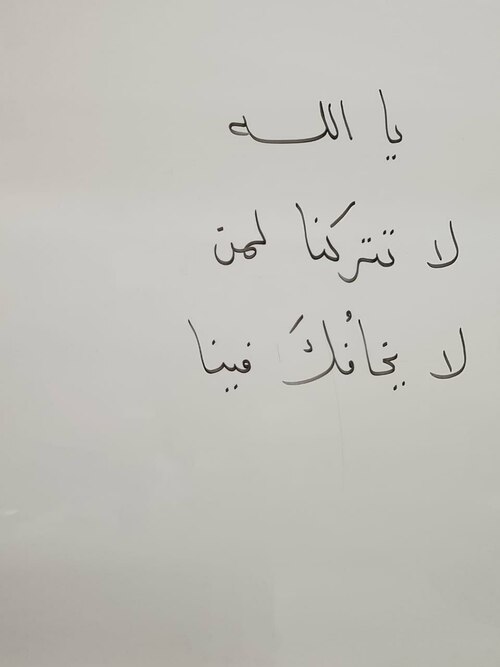 يا الله
لا تتركنا لمن
لا يخافُكَ فينا